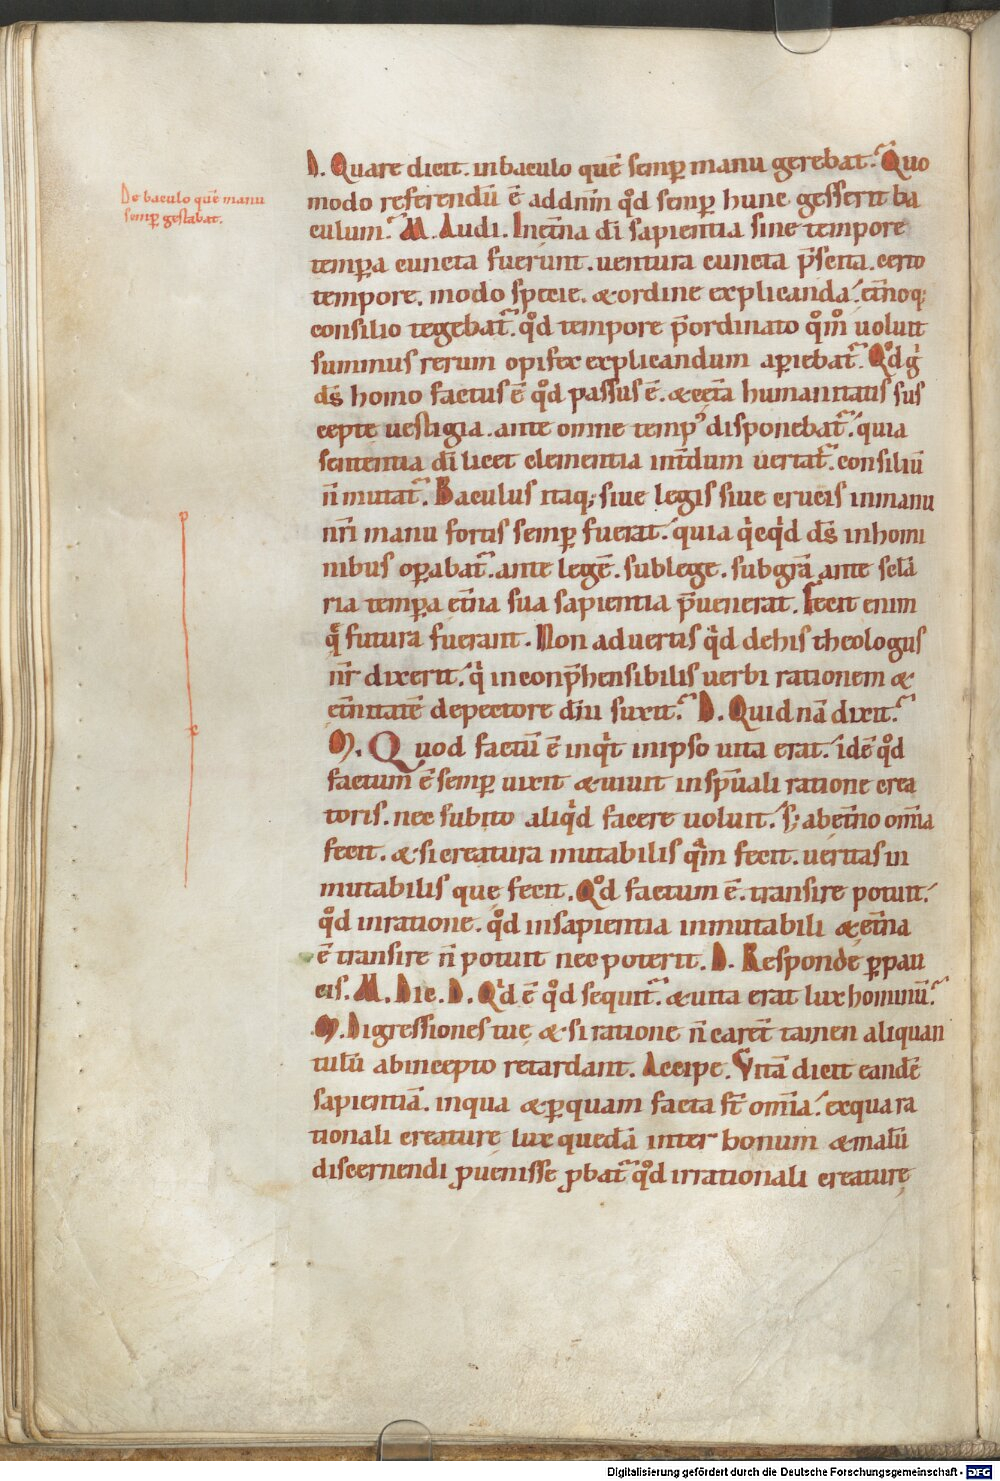 De baculo quē manu
semꝑ gestabat.
D. Quare dicit. in baculo quē semꝑ manu gerebat. Quo
modo referendū ē ad dnīm qd̄ semꝑ hunc gesserit ba
culum. M. Audi. In et̄na dī sapientia sine tempore
temꝑa cuncta fuerunt. uentura cuncta p̄senta. certo
tempore. modo specie. & ordine explicanda. et̄noq;
consilio tegebat᷑. qd̄ tempore p̄ordinato qm̄ uoluit
summus rerum opifex explicandum aꝑiebat᷑. Qd g̊
ds̄ homo factus ē qd̄ passus ē. & cet̄a humanitatis sus
cepte uestigia. ante omne temp᾽ disponebat᷑. quia
sententia dī licet clementia int̄dum uertat᷑. consiliū
n̄ mutat᷑. Baculus itaq; siue legis siue crucis in manu
nr̄i manu fortis semꝑ fuerat. quia qicqd ds̄ in homi
nibus oꝑabat᷑. ante legē. sub lege. sub gr̄a ante sclā
ria temꝑa et̄na sua sapientia p̄uenerat. Fecit enim
q̄ futura fuerant. Non aduertis qd de his theologus
nr̄ dixerit. qi incōp̄hensibilis uerbi rationem &
et̄nitatē de pectore dn̄i suxit. D. Quid nā dixit.
M. Quod factū ē inqt in ipso uita erat. idē qd̄
factum ē semꝑ uixit & uiuit in spūali ratione crea
toris. nec subito aliqd facere uoluit. s; ab et̄no omīa
fecit. & si creatura mutabilis qm̄ fecit. ueritas in
mutabilis quę fecit. Qd factum ē. transire potuit.
qd̄ in ratione. qd̄ in sapientia inmutabili & et̄na
ē transire n̄ potuit nec poterit. D. Respondē ꝑ pau
cis. M. Dic. D. Qd ē qd̄ sequit᷑. & uita erat lux hominū.
M. Digressiones tuę & si ratione n̄ caret tamen aliquan
tulū ab incepto retardant. Accipe. Vitā dicit eandē
sapientiā. in qua & ꝑ quam facta st̄ omīa. ex qua ra
tionali creaturę lux quedā inter bonum & malū
discernendi ꝓuenisse ꝓbat᷑ qd̄ irrationali creaturę
Digitalisierung gefördert durch die Deutsche Forschungsgemeinschaft - DFG